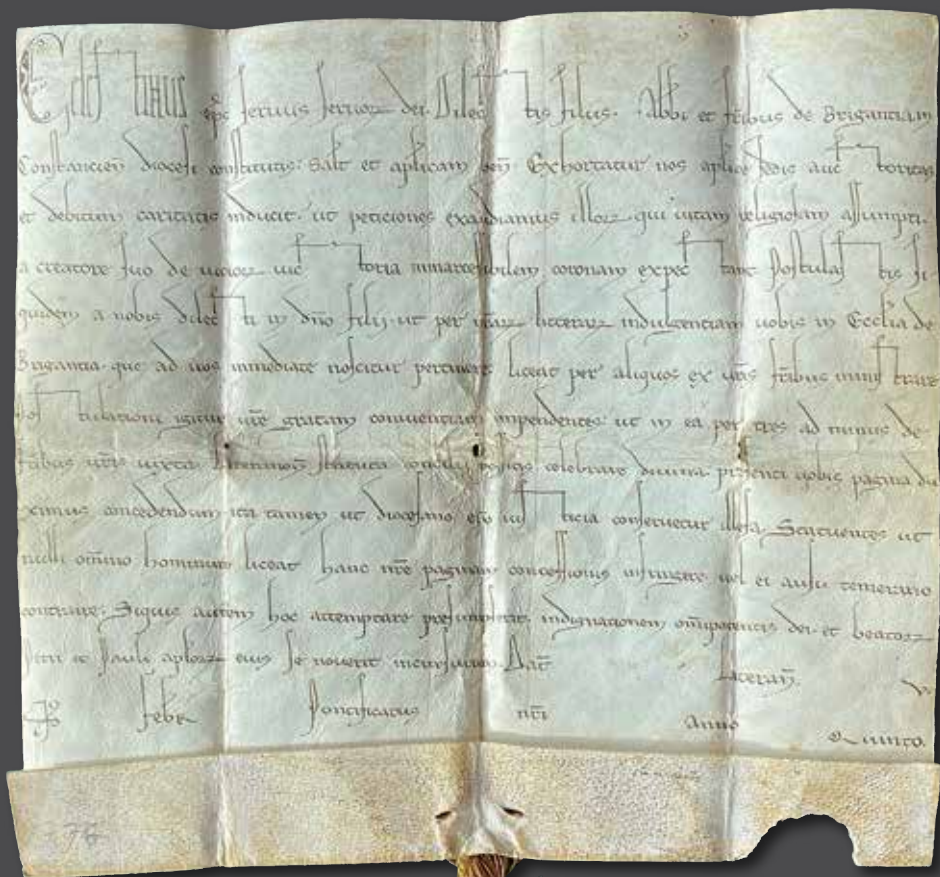 Celestinus epc servus servoꝝ dei. Dilectis filiis. Abbi et frībus de Brigantiam
Constancien̄ diocesi constitutis. Salt et aplicam ben̄. Exhortatur nos aplice sedis auctoritas
et debitum caritatis inducit. ut peticiones exaudiamus illoꝝ qui vitam religiosam assumpti.
a creatore suo de vicioꝝ victoria coronam expectant. Postulastis si
quidem a nobis dilecti in dn̄o filij. ut per nr̄aꝝ litteraꝝ indulgentiam vobis in Ecclīa de
Brigantia. que ad vos inmediate noscitur pertinere liceat per aliquos ex vr̄is fr̄ibus ministrare
Postulationi igitur vr̄e gratam conniventiam inpendentes. ut in ea per tres ad minus de
fr̄ibus vr̄is iuxta Lateranen̄ statuta concilii possitis celebrare divina. presenti vobis pagina du
ximus concedendum ita tamen ut diocesano ep̄o iusticia conservetur illesa. Statuentes ut
nulli om̄ino hominum liceat hanc nr̄e paginam concessionis infringere vel ei ausu temerario
contraire. Siquis autem hoc attemptare presumpserit indignationem om̄ipotentis dei. et beatoꝝ
Petri et Pauli aploꝝ eius se noverit incursurum. Dat̄ Lateran̄.
febr̄ Pontificatus nr̄i anno Quinto.
76